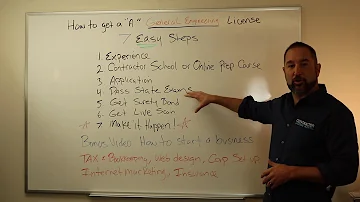 How to get a "A" General Engineering License
7 Easy Steps
1 Experience
2 Contractor School or Online Prep Course
3 Application
4 Pass State Exams
5 Get Surety Bond
6 Get Live Scan
-A- 7 Make it Happen! -A-
Bonus Video How to start a business
TAX & Bookkeeping, web design, Corp Set-up
Internet marketing, Insurance